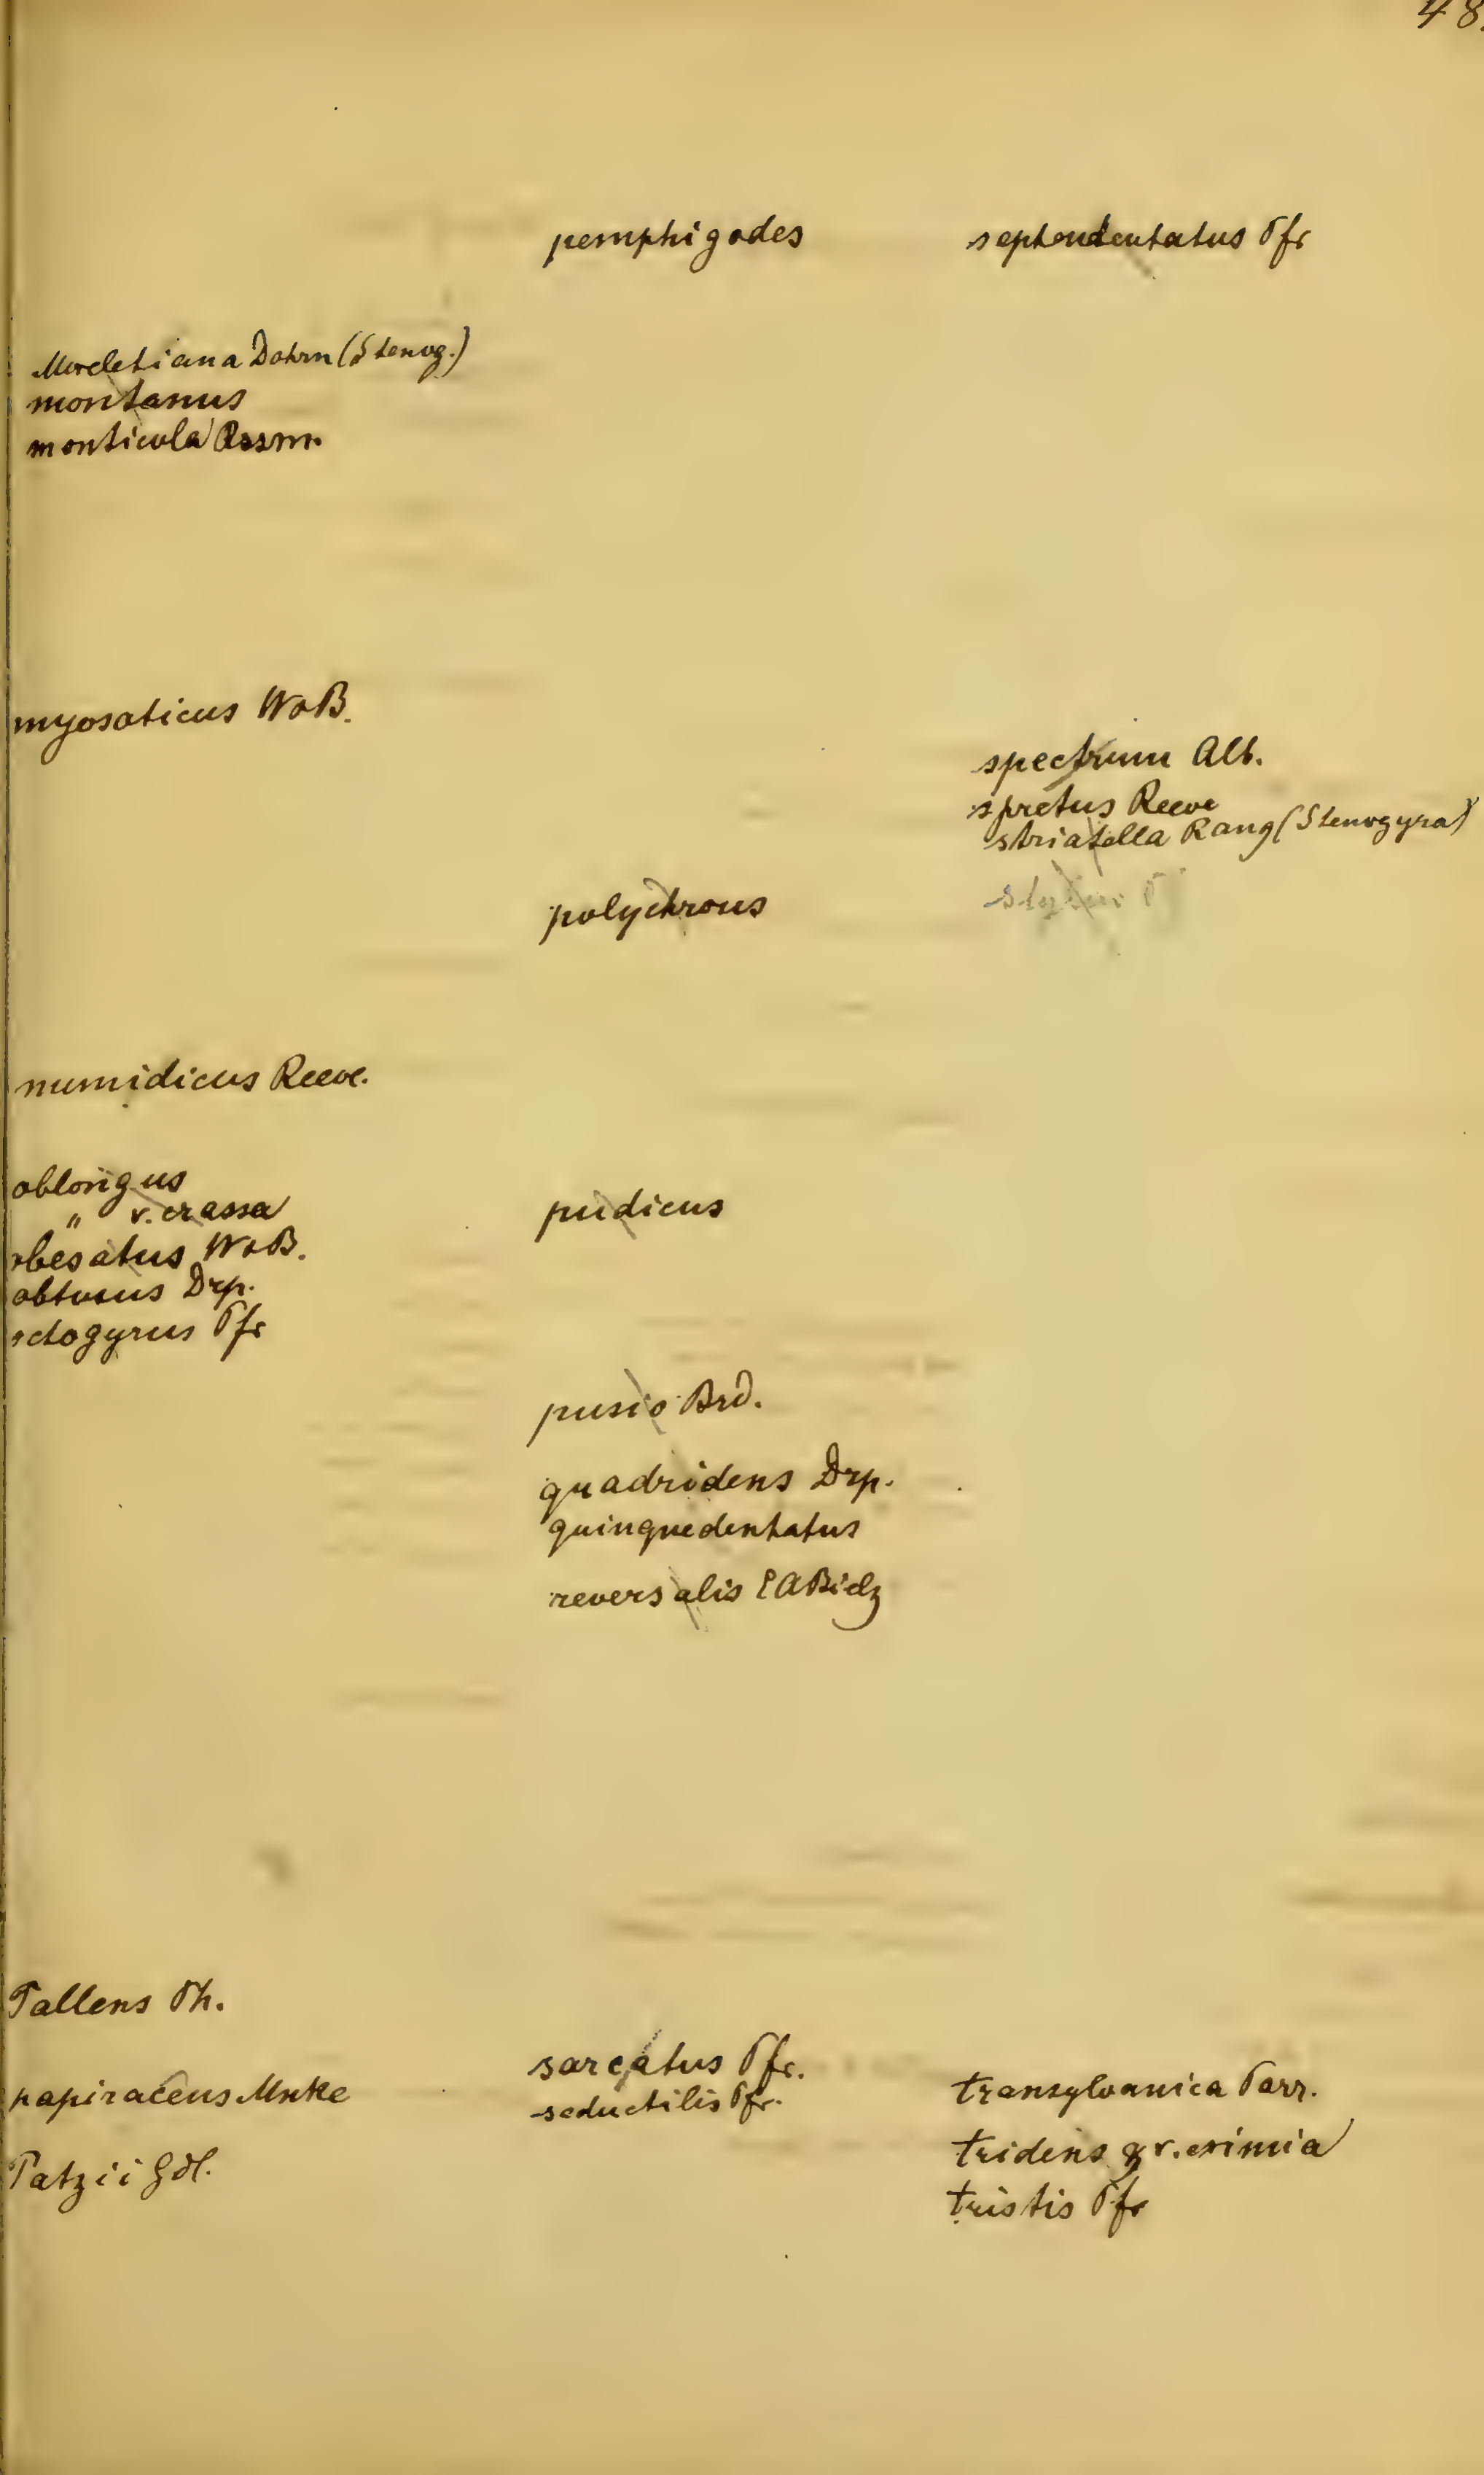 48.
Moreletiana Dohrn (Stenog.)
montanus
monticola Rssm.
myosoticus W&B.
numidicus Reeve.
oblongus
" v. crassa
obesatus W&B.
obtusus Drp.
octogyrus Pfr
Pallens Ph.
papiraceus Mnke
Patzii Gdl.
pemphigodes
polychrous
pudicus
pusio Brd.
quadridens Drp.
quinquedentatus
reversalis EABielz
sarcatus Pfr.
seductilis Pfr.
septemdentatus Pfr
spectrum Alb.
spretus Reeve
striatella Rang (Stenogyra)
transylvanica Parr.
tridens & v. eximia
tristis Pfr